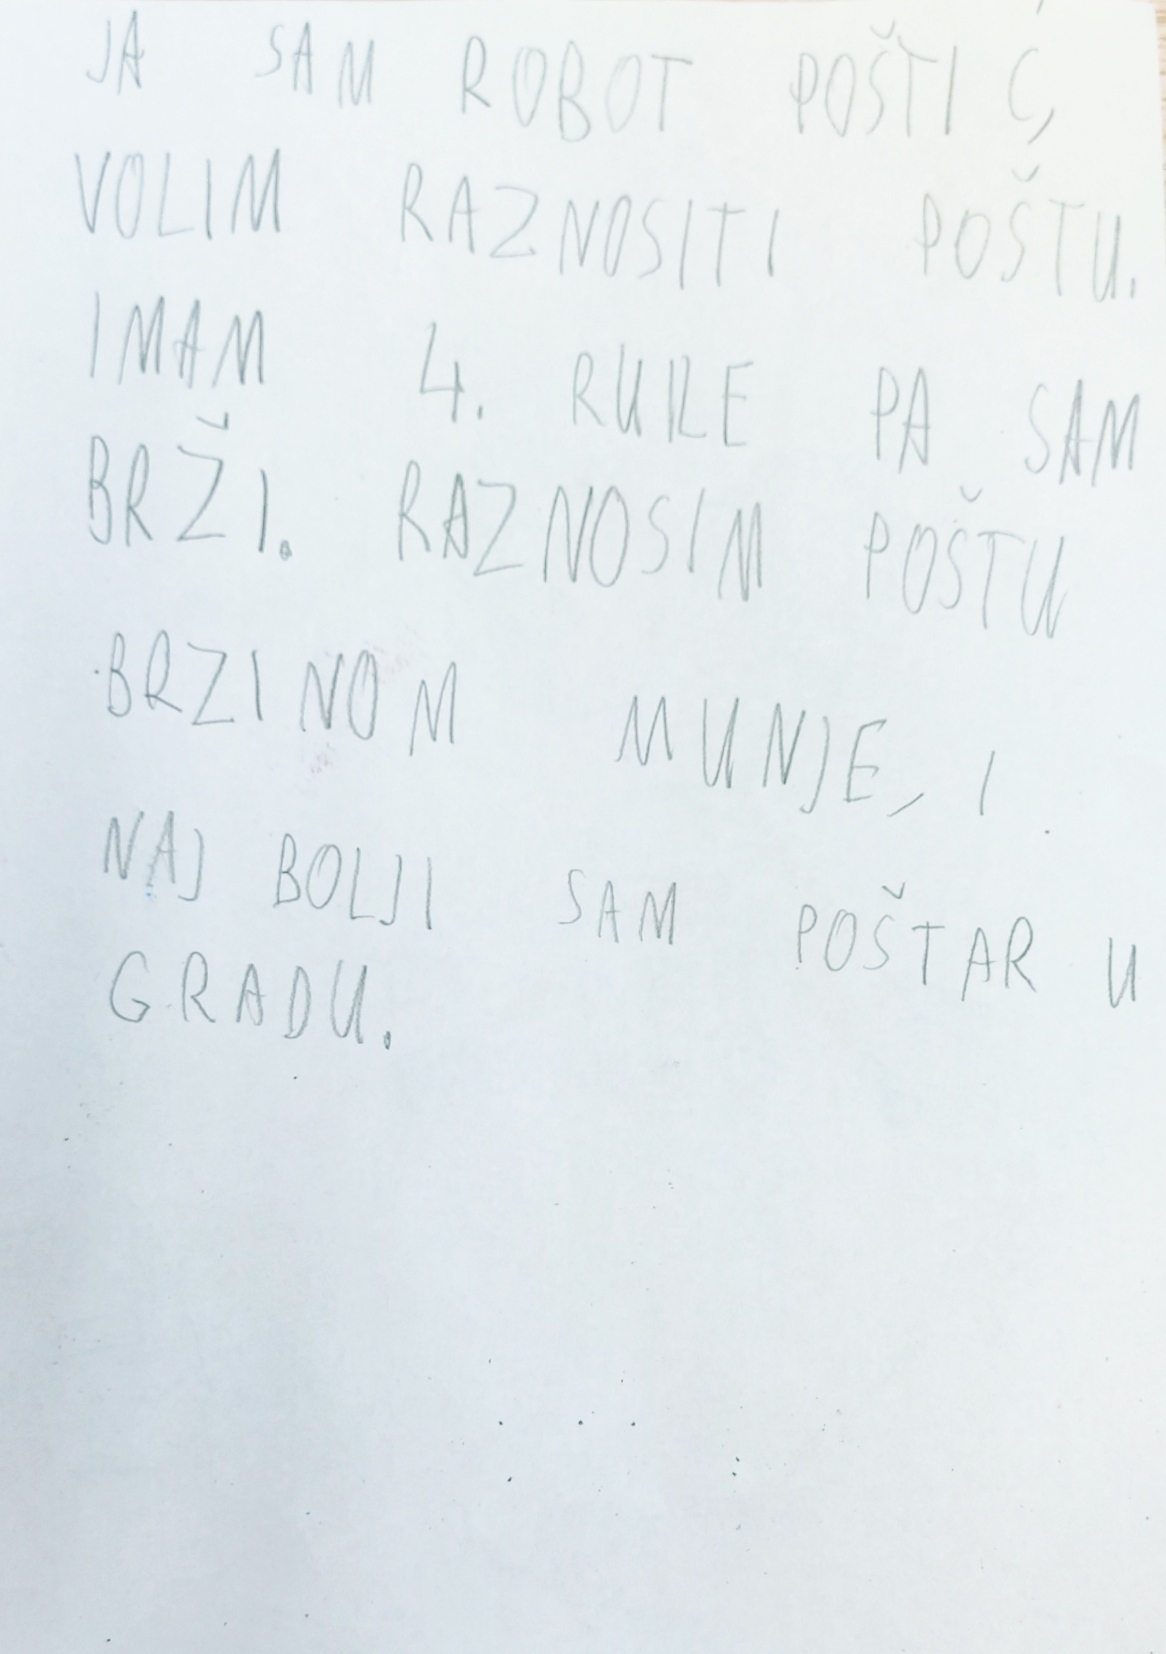 JA SAM ROBOT POŠTIĆ,
VOLIM RAZNOSITI POŠTU.
IMAM 4. RUKE PA SAM
BRŽI. RAZNOSIM POŠTU
BRZINOM MUNJE, I
NAJ BOLJI SAM POŠTAR U
GRADU.